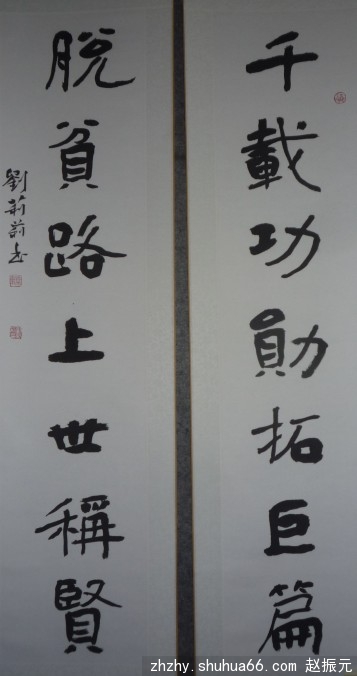 千載功勛拓巨篇
脱貧路上世稱賢
劉莉书
zhzhy.shuhua66.com 赵振元